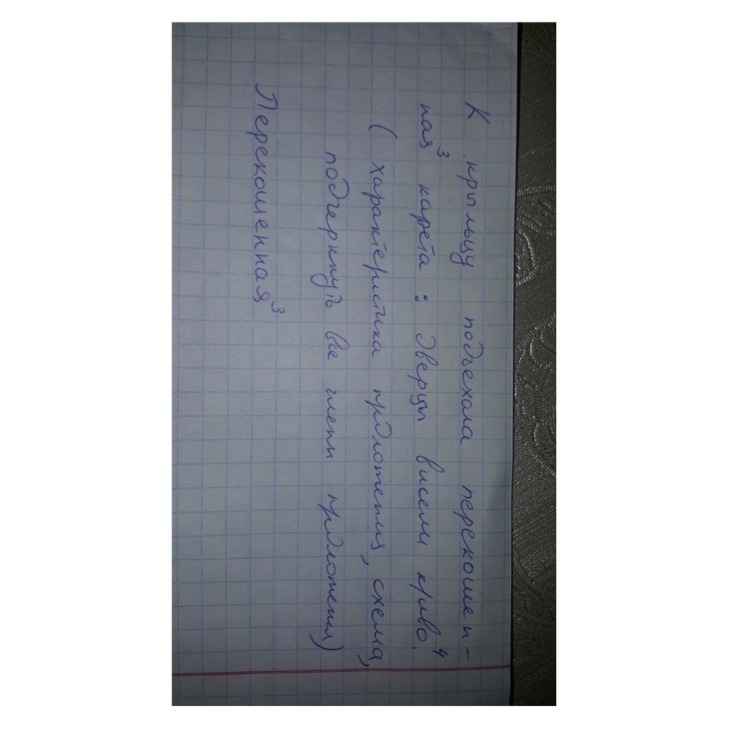 К крыльцу подъехала перекошен-
ная³ карета : дверцы висели криво.⁴
( характеристика предложения, схема,
подчеркнуть все члены предложения)
Перекошенная³